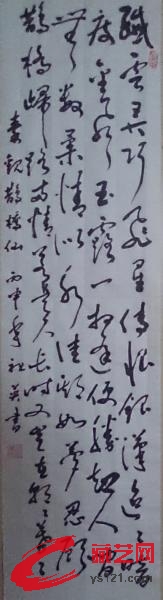 纖雲弄巧飛星傳恨銀漢迢〻暗
度金風玉露一相逢便勝却人間
無數柔情似水佳期如夢忍顧
鵲橋歸路兩情若是久長時又豈在朝〻暮〻
秦觀鵲橋仙 丙申年 書
藏艺网
ys121.com